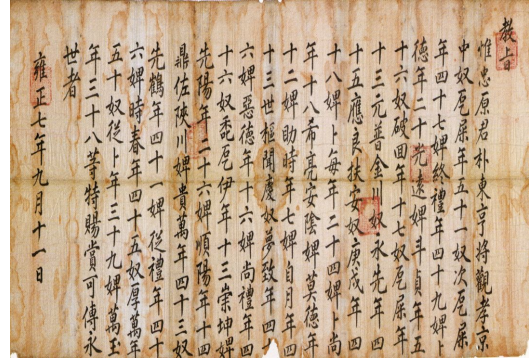 教旨
惟忠原君朴東亨將觀孝京
中奴㐗屎年五十一奴次㐗屎
年四十七婢終禮年四十九婢卜
德年二十先逺婢斗貞年五
十六奴破回年十七奴㐗屎年
十三元普金川奴永先年四
十五應良扶安奴庚戌年四
十八婢卜每年二十四婢尚
年十八希亮安陰婢莫德年
十二婢助時年七婢自月年四
十三世樞聞慶奴夢致年四十
六婢惡德年十六婢尚禮年四
十六奴㐗伊年十三崇坤婢
先陽年二十六婢順陽年十四
鼎佐陜川婢貴萬年四十三奴
先鶴年四十一婢從禮年四十
六婢時春年四十五奴厚萬年
五十奴從卜年三十九婢萬玉
年三十八等特賜賞可傳永
世者
雍正七年九月十一日